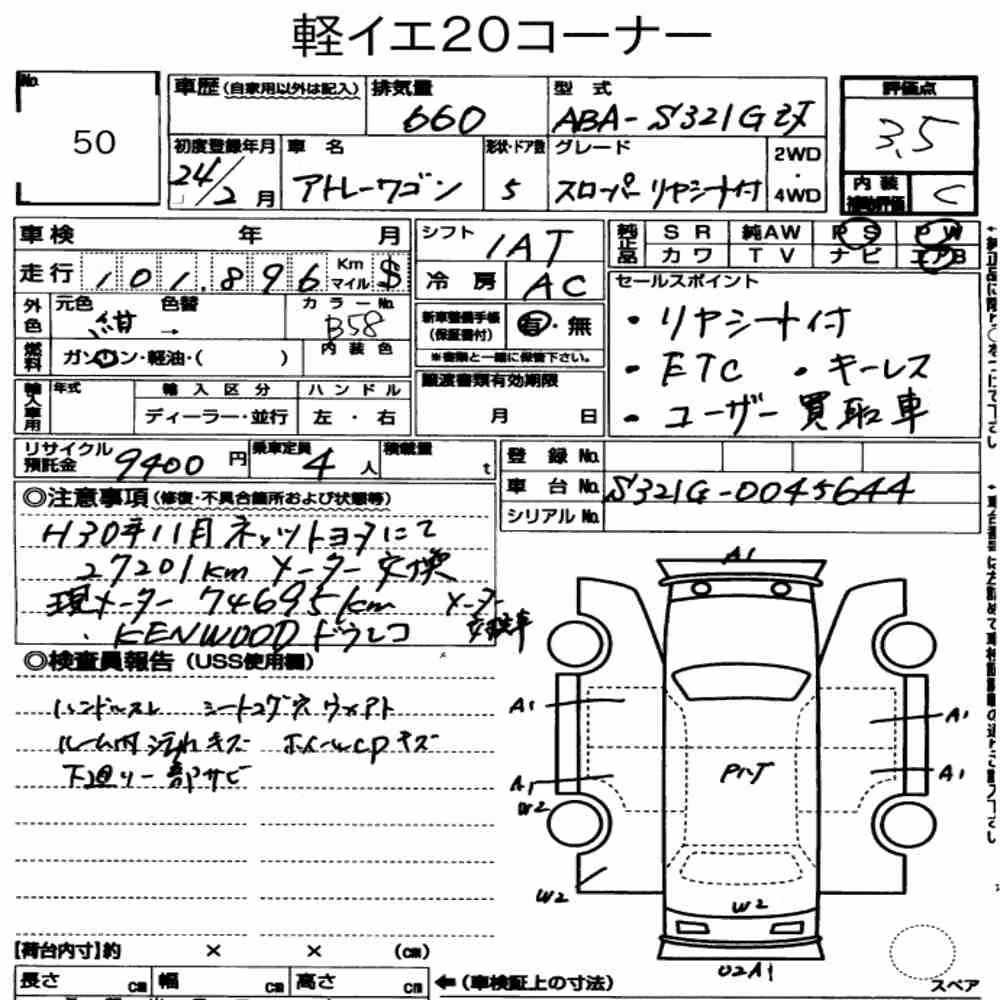 軽イエ20コーナー
No.
50
車歴(自家用以外は記入)
排気量
660
型式
ABA-S321G改
評価点
3.5
初度登録年月
24/2月
車名
アトレーワゴン
形状・ドア数
5
グレード
スローパー リヤシート付
2WD
・
4WD
内装
補助評価
C
車検 年 月
走行 101,896 Km マイル $
外色
元色
紺
色替
→
カラーNo.
B58
内装色
燃料
ガソリン・軽油・( )
輸入車用
年式
輸入区分
ディーラー・並行
ハンドル
左・右
シフト
IAT
冷房
AC
新車整備手帳
(保証書付)
有・無
※書類と一緒に保管下さい。
譲渡書類有効期限
月 日
純正品
SR 純AW PS PW
カワ TV ナビ エアB
セールスポイント
・リヤシート付
・ETC ・キーレス
・ユーザー買取車
リサイクル
預託金
9400円
乗車定員
4人
積載量
t
登録No.
車台No.
S321G-0045644
シリアルNo.
◎注意事項(修復・不具合箇所および状態等)
H30年11月ネッツトヨタにて
27201km メーター交換
現メーター 74695km メーター
・KENWOOD ドラレコ 交換車
◎検査員報告(USS使用欄)
ハンドルスレ シートコゲ穴
ルーム内汚れキズ ホイールCPキズ
下廻り一部サビ
A1
A1
A1
A1
W2
A1
W2
W2
U2A1
スペア
【荷台内寸】約 × × (cm)
長さ cm 幅 cm 高さ cm
←(車検証上の寸法)